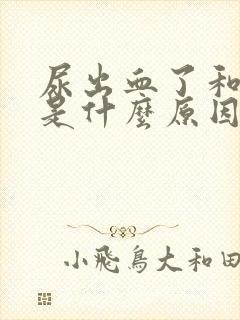 尿出血了和
是什麼原因
小飛鳥大和田